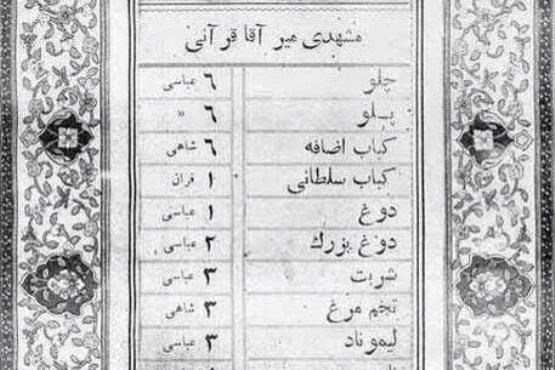 مشهدی میر آقا قرآنی
چلو ۶ عباسی
پلو ۶ »
کباب اضافه ۶ شاهی
کباب سلطانی ۱ قران
دوغ ۱ عباسی
دوغ بزرگ ۲ عباسی
شربت ۳ عباسی
تخم مرغ ۳ شاهی
لیموناد ۳ عباسی